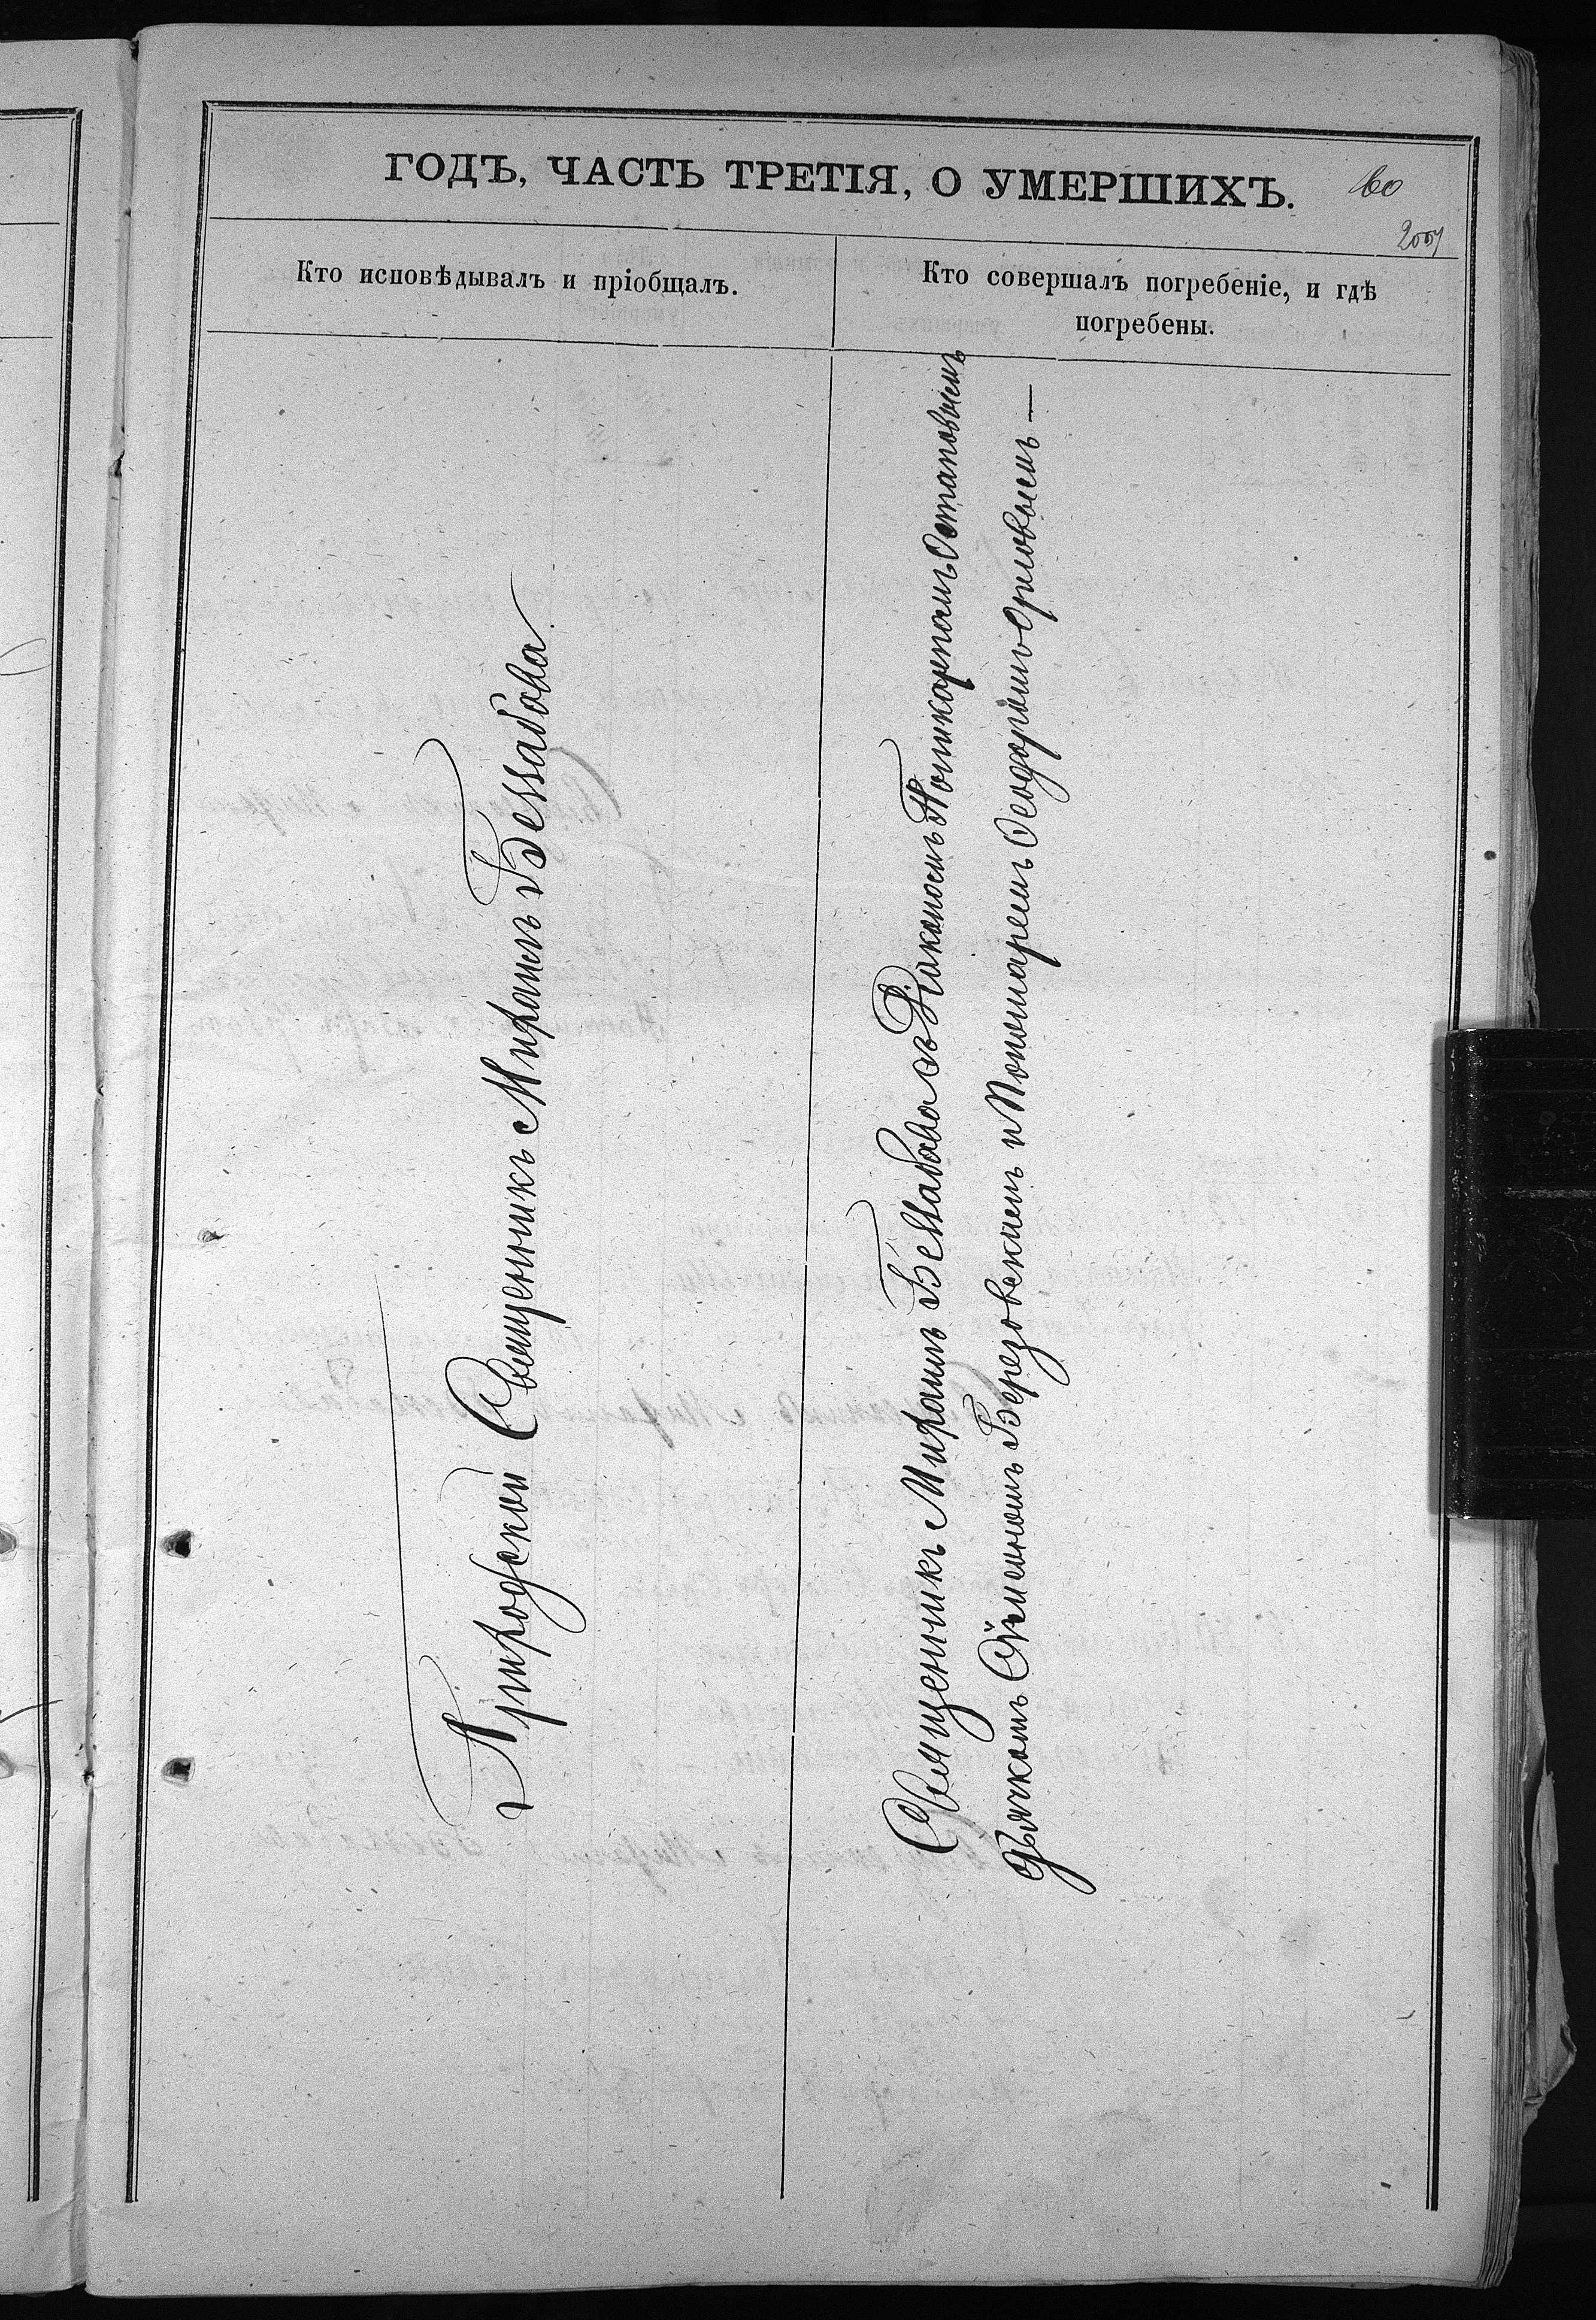 ГОДЪ, ЧАСТЬ ТРЕТІЯ, О УМЕРШИХЪ.
160
Кто исповѣдывалъ и пріобщалъ.
Кто совершалъ погребеніе, и гдѣ
погребены.
Приходскій Священникъ Миронъ Беззабава
Священникъ Миронъ Беззабава съ Діакономъ Поликарпомъ Остаповымъ
дьячкомъ Сѵмеономъ Березовскимъ и Пономаремъ Ѳеодоромъ Орловымъ —